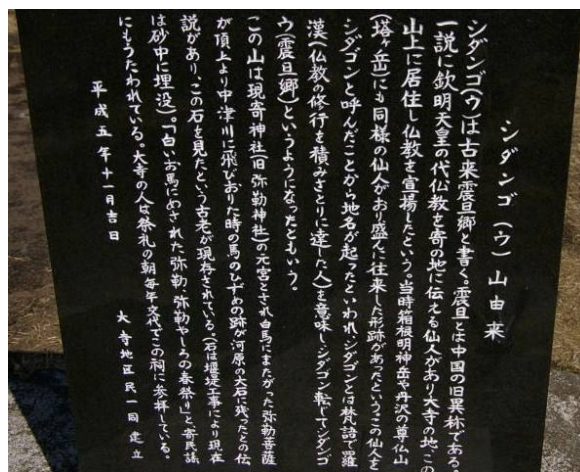 シダンゴ(ウ)山由来
シダンゴ(ウ)は古来震旦郷と書く。震旦とは中国の旧異称である。
一説に欽明天皇の代仏教を寄の地に伝える仙人があり大寺の地、この
山上に居住し仏教を宣揚したという。当時箱根明神岳や丹沢の尊仏山
(塔ヶ岳)にも同様の仙人がおり盛んに往来した形跡があったという。この仙人を
シダゴンと呼んだことから地名が起ったといわれ、シダゴンとは梵語で羅
漢(仏教の修行を積みさとりに達した人)を意味し、シダゴン転じてシダンゴ
ウ(震旦郷)というようになったともいう。
この山は現寄神社(旧弥勒神社)の元宮とされ白馬にまたがった弥勒菩薩
が頂上より中津川に飛びおりた時の馬のひずめの跡が河原の大石に残ったとの伝
説があり、この石を見たという古老が現存されている。(石は堰堤工事により現在
は砂中に埋没)。「白いお馬にめされた弥勒、弥勒やしろの春祭り」と寄民謡
にもうたわれている。大寺の人は祭礼の朝毎年交代でこの祠に参拝している。
平成五年十一月吉日
大寺地区民一同建立